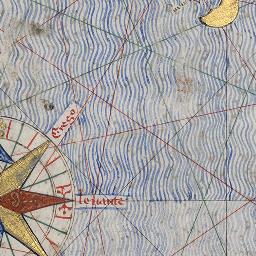 Grego
leuante